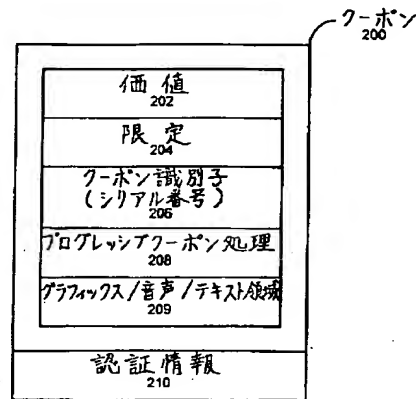 クーポン
200
価値
202
限定
204
クーポン識別子
(シリアル番号)
206
プログレッシブクーポン処理
208
グラフィックス/音声/テキスト領域
209
認証情報
210